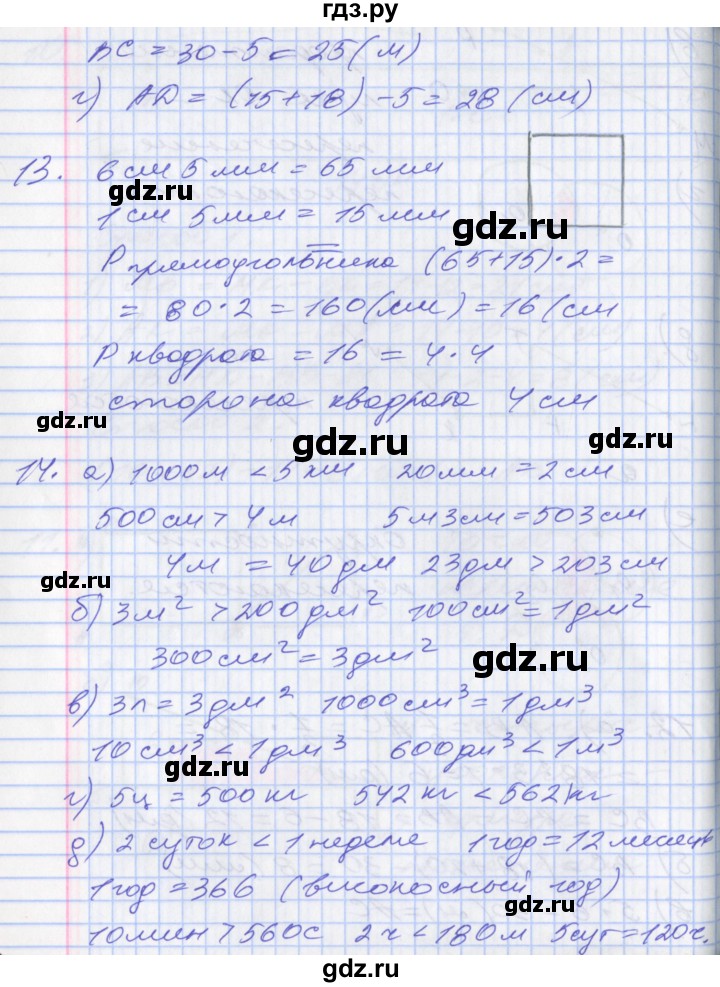 гдз.ру
BC = 30 - 5 = 25 (м)
г) AD = (15 + 18) - 5 = 28 (см)
13. 6 см 5 мм = 65 мм
gdz.ru
gdz.ru
1 см 5 мм = 15 мм
P прямоугольника (65+15)·2 =
= 80·2 = 160(мм) = 16 (см
P квадрата = 16 = 4·4
сторона квадрата 4 см
gdz.ru
gdz.ru
14. а) 1000 м < 5 км 20 мм = 2 см
500 см > 4 м 5 м 3 см = 503 см
4 м = 40 дм 23 дм > 203 см
б) 3 м² > 200 дм² 100 см² = 1 дм²
300 см² = 3 дм²
gdz.ru
в) 3 л = 3 дм² 1000 см³ = 1 дм³
10 см³ < 1 дм³ 600 дм³ < 1 м³
gdz.ru
г) 5 ц = 500 кг 542 кг < 562 кг
д) 2 суток < 1 неделе 1 год = 12 месяцев
1 год = 366 (високосный год)
gdz.ru
10 мин > 560 с 2 ч < 180 м 5 сут = 120 ч.
gdz.ru